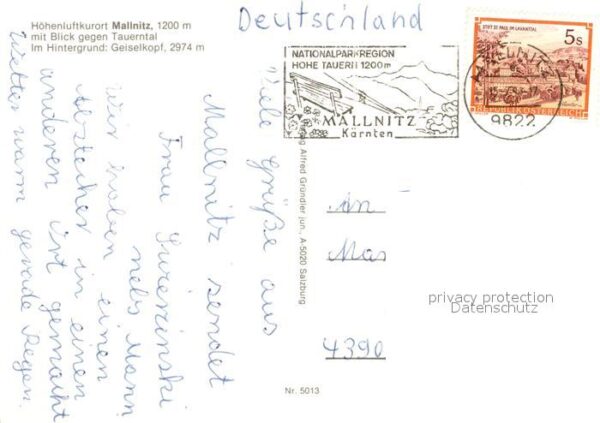 Höhenluftkurort Mallnitz, 1200 m
mit Blick gegen Tauerntal
Im Hintergrund: Geiselkopf, 2974 m
Deutschland
NATIONALPARKREGION
HOHE TAUERN 1200m
MALLNITZ
Kärnten
STIFT ST. PAUL IM LAVANTTAL
5s
REPUBLIK ÖSTERREICH
MALLNITZ
9822
Viele Grüße aus
Mallnitz sendet
Frau
nebs Mann
Wir haben einen
Abstecher in einen
anderen Ort gemacht
Wetter warm gerade Regen.
Verlag Alfred Gründler jun., A-5020 Salzburg
An
4390
privacy protection
Datenschutz
Nr. 5013